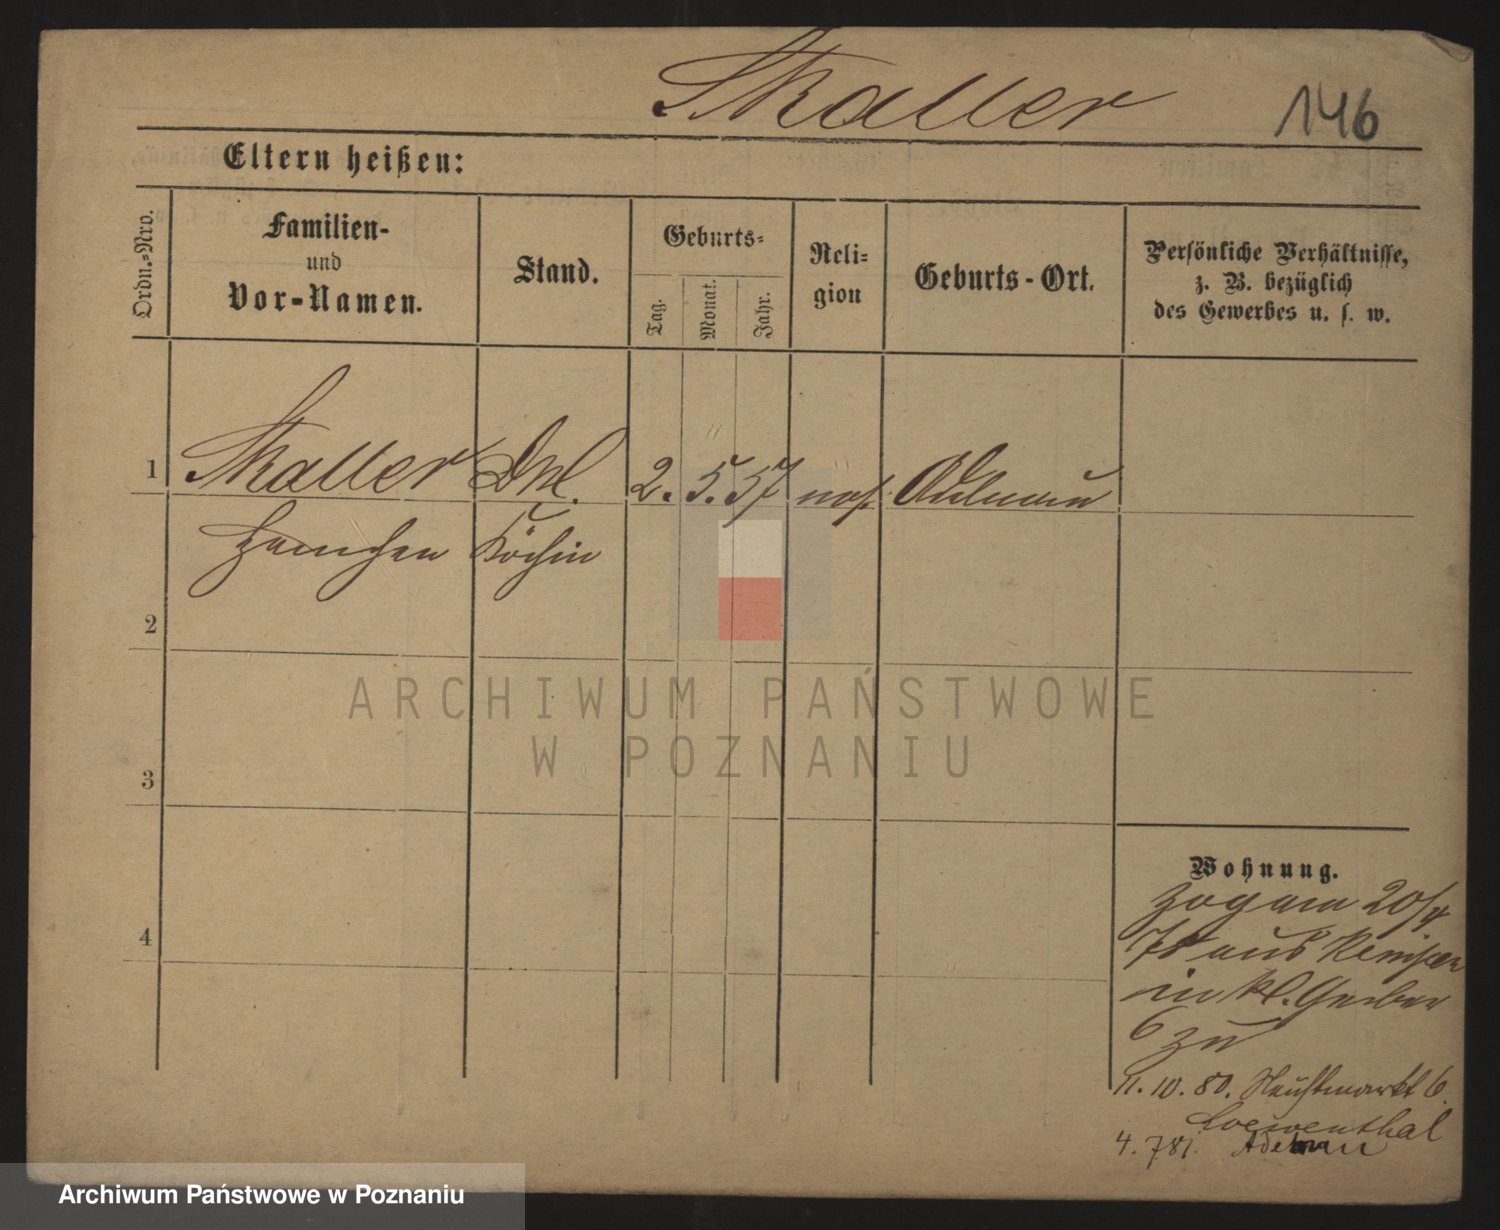 Skaller 146
Eltern heißen:
Ordn.-Nro.
Familien-
und
Vor-Namen.
Stand.
Geburts-
Tag.
Monat.
Jahr.
Reli-
gion
Geburts-Ort.
Persönliche Verhältnisse,
z. B. bezüglich
des Gewerbes u. s. w.
1 Skaller 2. 5. 57 mos. Adelnau
Hannchen Köchin
2
3
4
Wohnung.
zog am 20/4
78 aus Kempen
in kl. Gerber
6 zu
11. 10. 80. 6.
Loewenthal
4. 7 81. Adelnau
ARCHIWUM PAŃSTWOWE
W POZNANIU
Archiwum Państwowe w Poznaniu